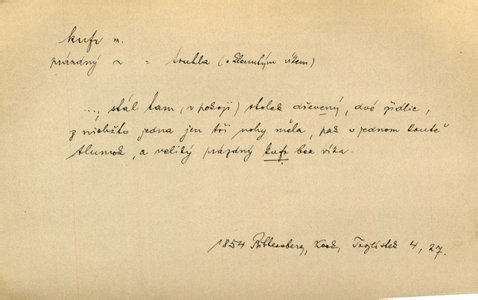 kufr m.
prázdný ~ = truhla (s klenutým víkem)
..., stál tam, (v pokoji) stolek dřevený, dvě židle,
z nichžto jedna jen tři nohy měla, pak v jednom koutě
tlumok, a veliký prázdný kufr bez víka.
1854 Rittersberg, 4, 27.